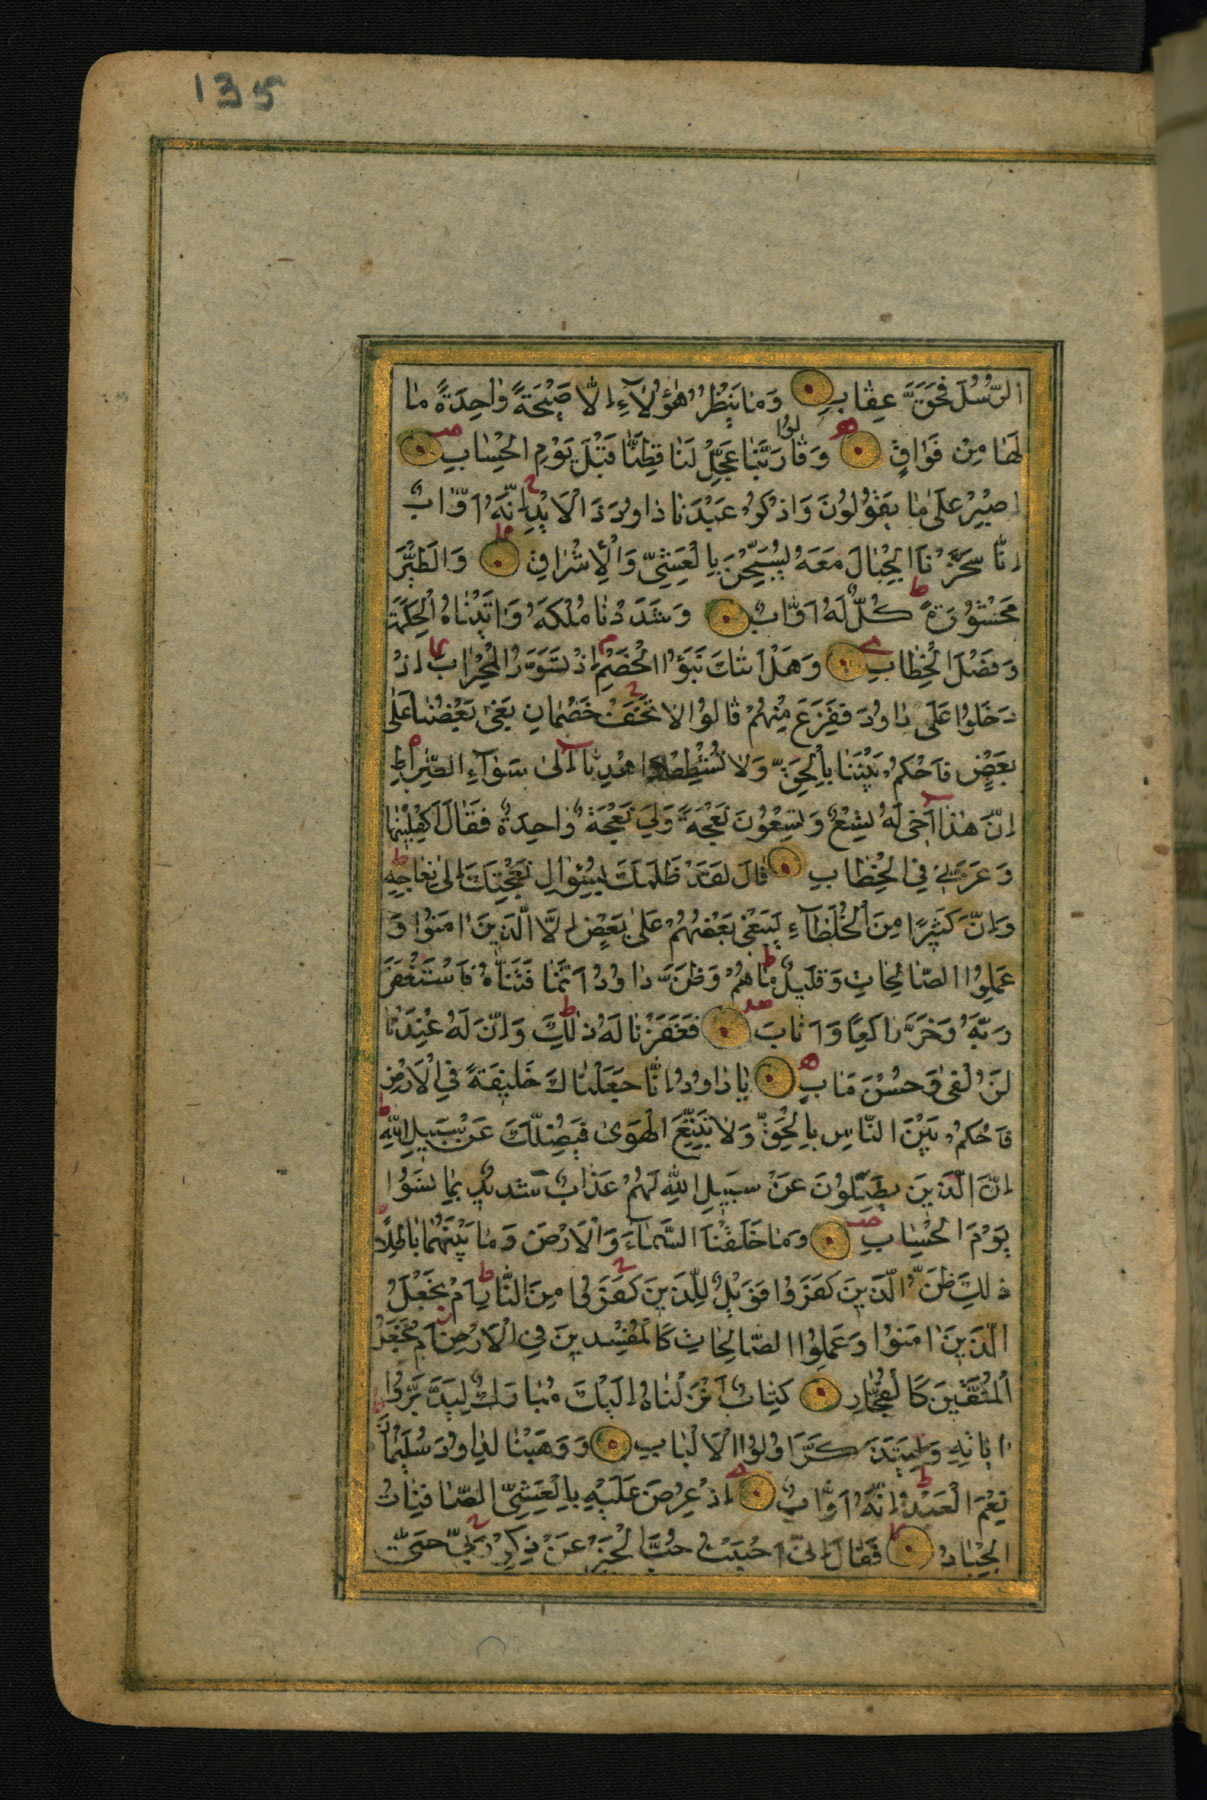 135
الرُّسُلَ فَحَقَّ عِقَابِ وَمَا يَنْظُرُ هٰؤُلَآءِ اِلَّا صَيْحَةً وَاحِدَةً مَا
لَهَا مِنْ فَوَاقٍ وَقَالُوا رَبَّنَا عَجِّلْ لَنَا قِطَّنَا قَبْلَ يَوْمِ الْحِسَابِ
اِصْبِرْ عَلٰى مَا يَقُولُونَ وَاذْكُرْ عَبْدَنَا دَاوُدَ ذَا الْاَيْدِ اِنَّهُ اَوَّابٌ
اِنَّا سَخَّرْنَا الْجِبَالَ مَعَهُ يُسَبِّحْنَ بِالْعَشِيِّ وَالْاِشْرَاقِ وَالطَّيْرَ
مَحْشُورَةً كُلٌّ لَهُ اَوَّابٌ وَشَدَدْنَا مُلْكَهُ وَاٰتَيْنَاهُ الْحِكْمَةَ
وَفَصْلَ الْخِطَابِ وَهَلْ اَتٰكَ نَبَؤُا الْخَصْمِ اِذْ تَسَوَّرُوا الْمِحْرَابَ اِذْ
دَخَلُوا عَلٰى دَاوُدَ فَفَزِعَ مِنْهُمْ قَالُوا لَا تَخَفْ خَصْمَانِ بَغٰى بَعْضُنَا عَلٰى
بَعْضٍ فَاحْكُمْ بَيْنَنَا بِالْحَقِّ وَلَا تُشْطِطْ وَاهْدِنَا اِلٰى سَوَآءِ الصِّرَاطِ
اِنَّ هٰذَا اَخِى لَهُ تِسْعٌ وَتِسْعُونَ نَعْجَةً وَلِىَ نَعْجَةٌ وَاحِدَةٌ فَقَالَ اَكْفِلْنِيهَا
وَعَزَّنِى فِى الْخِطَابِ قَالَ لَقَدْ ظَلَمَكَ بِسُؤَالِ نَعْجَتِكَ اِلٰى نِعَاجِهِ
وَاِنَّ كَثِيرًا مِنَ الْخُلَطَآءِ لَيَبْغِى بَعْضُهُمْ عَلٰى بَعْضٍ اِلَّا الَّذِينَ اٰمَنُوا وَ
عَمِلُوا الصَّالِحَاتِ وَقَلِيلٌ مَا هُمْ وَظَنَّ دَاوُدُ اَنَّمَا فَتَنَّاهُ فَاسْتَغْفَرَ
رَبَّهُ وَخَرَّ رَاكِعًا وَاَنَابَ فَغَفَرْنَا لَهُ ذٰلِكَ وَاِنَّ لَهُ عِنْدَنَا
لَزُلْفٰى وَحُسْنَ مَاٰبٍ يَا دَاوُدُ اِنَّا جَعَلْنَاكَ خَلِيفَةً فِى الْاَرْضِ
فَاحْكُمْ بَيْنَ النَّاسِ بِالْحَقِّ وَلَا تَتَّبِعِ الْهَوٰى فَيُضِلَّكَ عَنْ سَبِيلِ اللّٰهِ
اِنَّ الَّذِينَ يَضِلُّونَ عَنْ سَبِيلِ اللّٰهِ لَهُمْ عَذَابٌ شَدِيدٌ بِمَا نَسُوا
يَوْمَ الْحِسَابِ وَمَا خَلَقْنَا السَّمَآءَ وَالْاَرْضَ وَمَا بَيْنَهُمَا بَاطِلًا
ذٰلِكَ ظَنُّ الَّذِينَ كَفَرُوا فَوَيْلٌ لِلَّذِينَ كَفَرُوا مِنَ النَّارِ اَمْ نَجْعَلُ
الَّذِينَ اٰمَنُوا وَعَمِلُوا الصَّالِحَاتِ كَالْمُفْسِدِينَ فِى الْاَرْضِ اَمْ نَجْعَلُ
الْمُتَّقِينَ كَالْفُجَّارِ كِتَابٌ اَنْزَلْنَاهُ اِلَيْكَ مُبَارَكٌ لِيَدَّبَّرُوا
اٰيَاتِهِ وَلِيَتَذَكَّرَ اُولُوا الْاَلْبَابِ وَوَهَبْنَا لِدَاوُدَ سُلَيْمَانَ
نِعْمَ الْعَبْدُ اِنَّهُ اَوَّابٌ اِذْ عُرِضَ عَلَيْهِ بِالْعَشِيِّ الصَّافِنَاتُ
الْجِيَادُ فَقَالَ اِنِّى اَحْبَبْتُ حُبَّ الْخَيْرِ عَنْ ذِكْرِ رَبِّى حَتّٰى